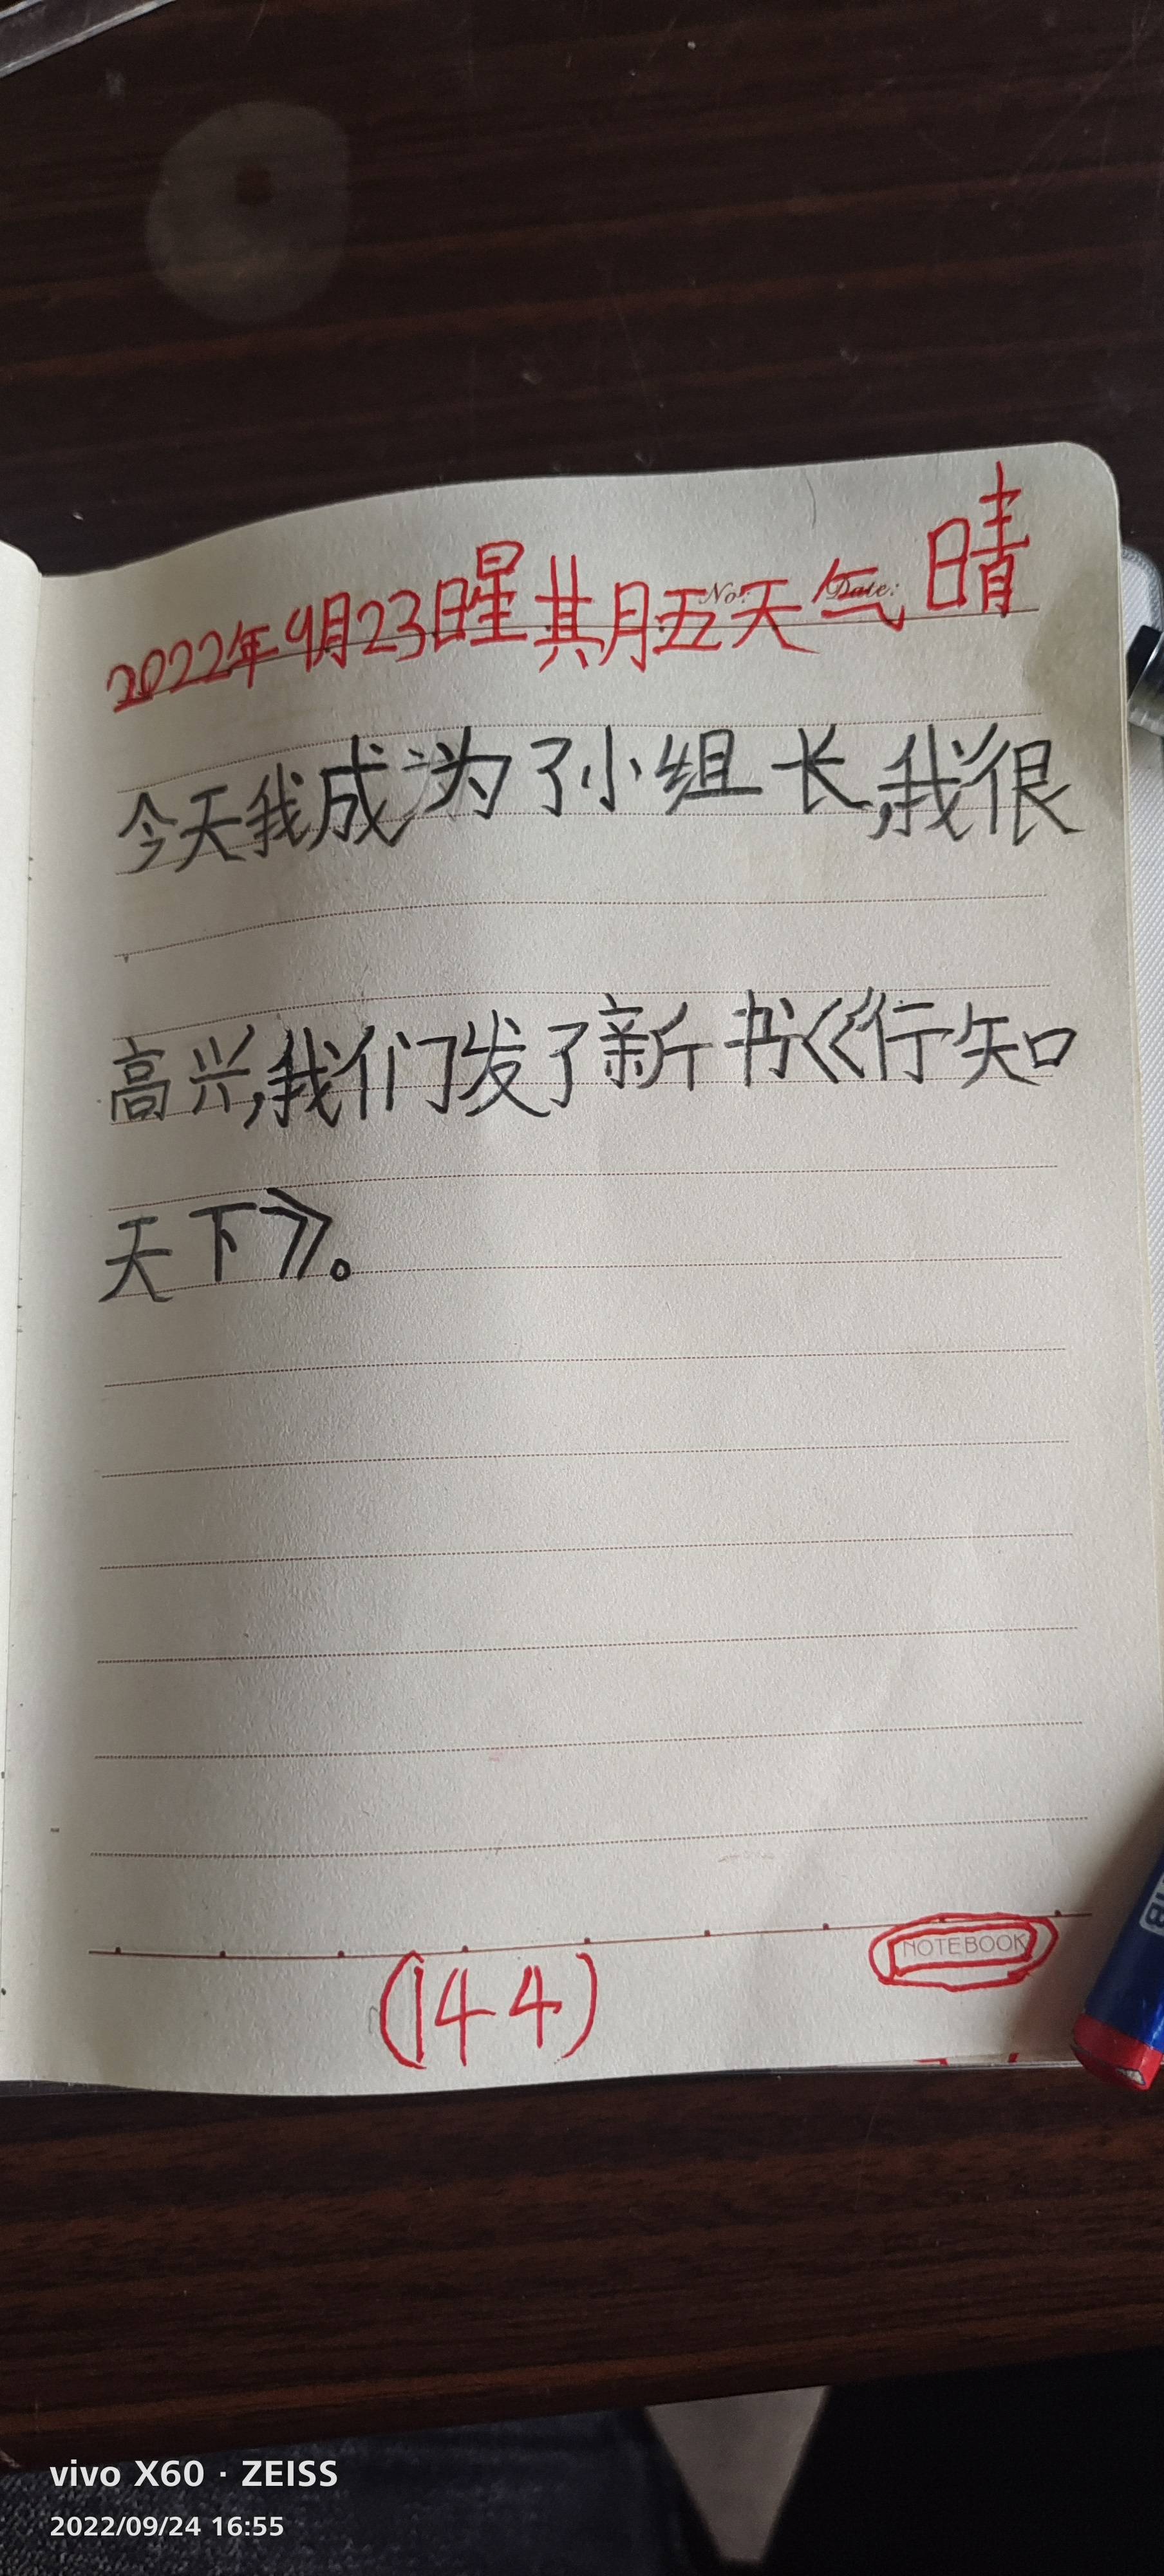 2022年9月23日星期五天气晴
No:
Date:
今天我成为了小组长,我很
高兴,我们发了新书《行知
天下》。
(144)
NOTEBOOK
vivo X60 · ZEISS
2022/09/24 16:55